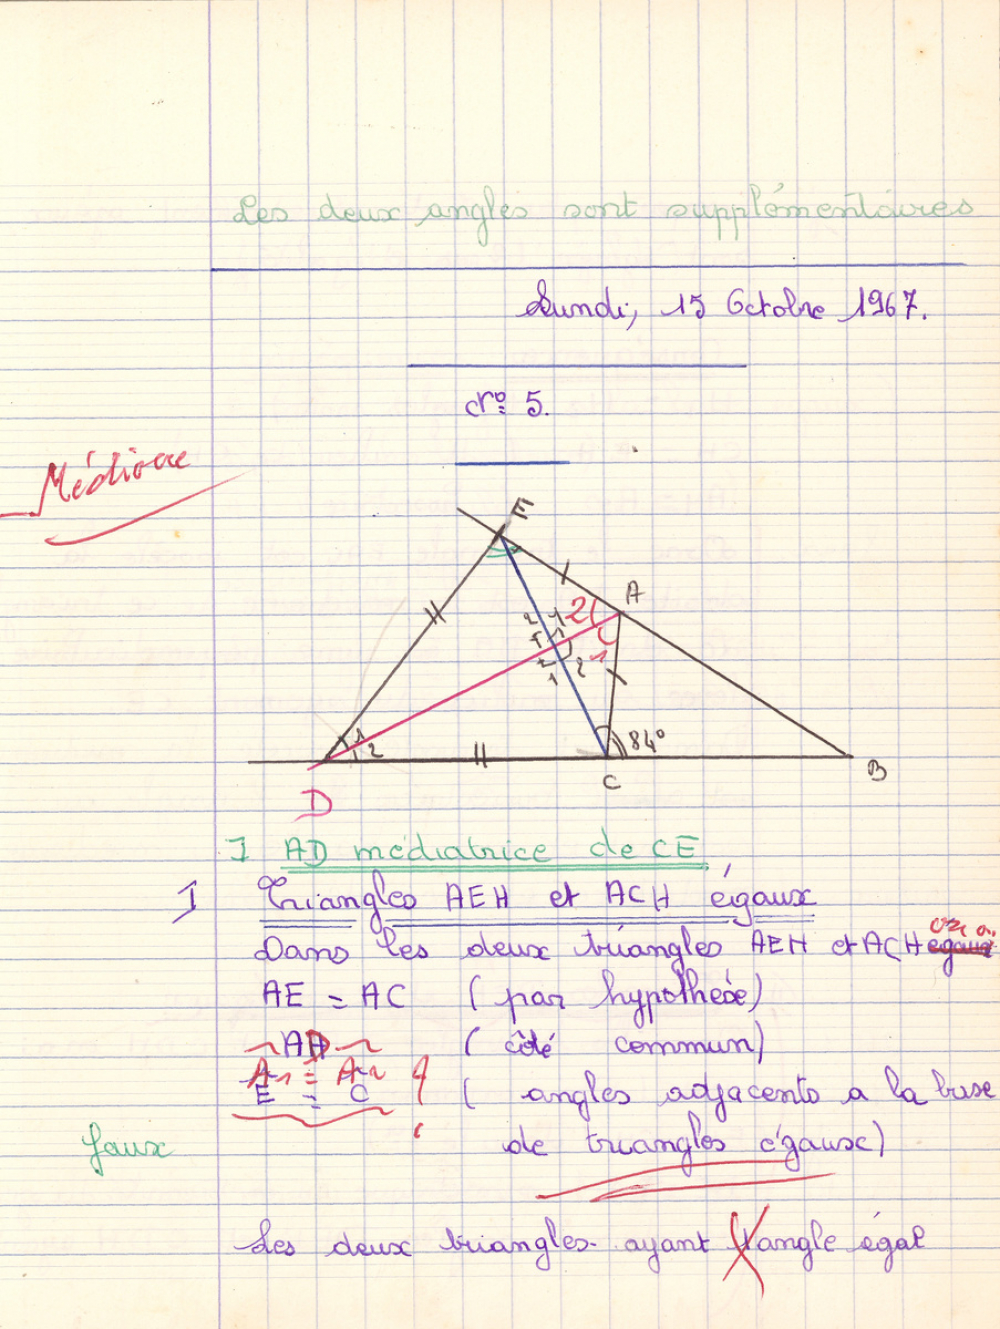 Les deux angles sont supplémentaires
Lundi, 15 Octobre 1967.
N° 5.
Médiocre
E
A
2 1 2
1
1
2
1 2
1
84°
D
C
B
I AD médiatrice de CE
I Triangles AEH et ACH égaux
Dans les deux triangles AEH et ACH égaux on a.
AE = AC ( par hypothèse)
AD ( côté commun)
A1 = A2
E = C ( angles adjacents a la base
faux de triangles égaux)
Les deux triangles ayant 1 angle égal